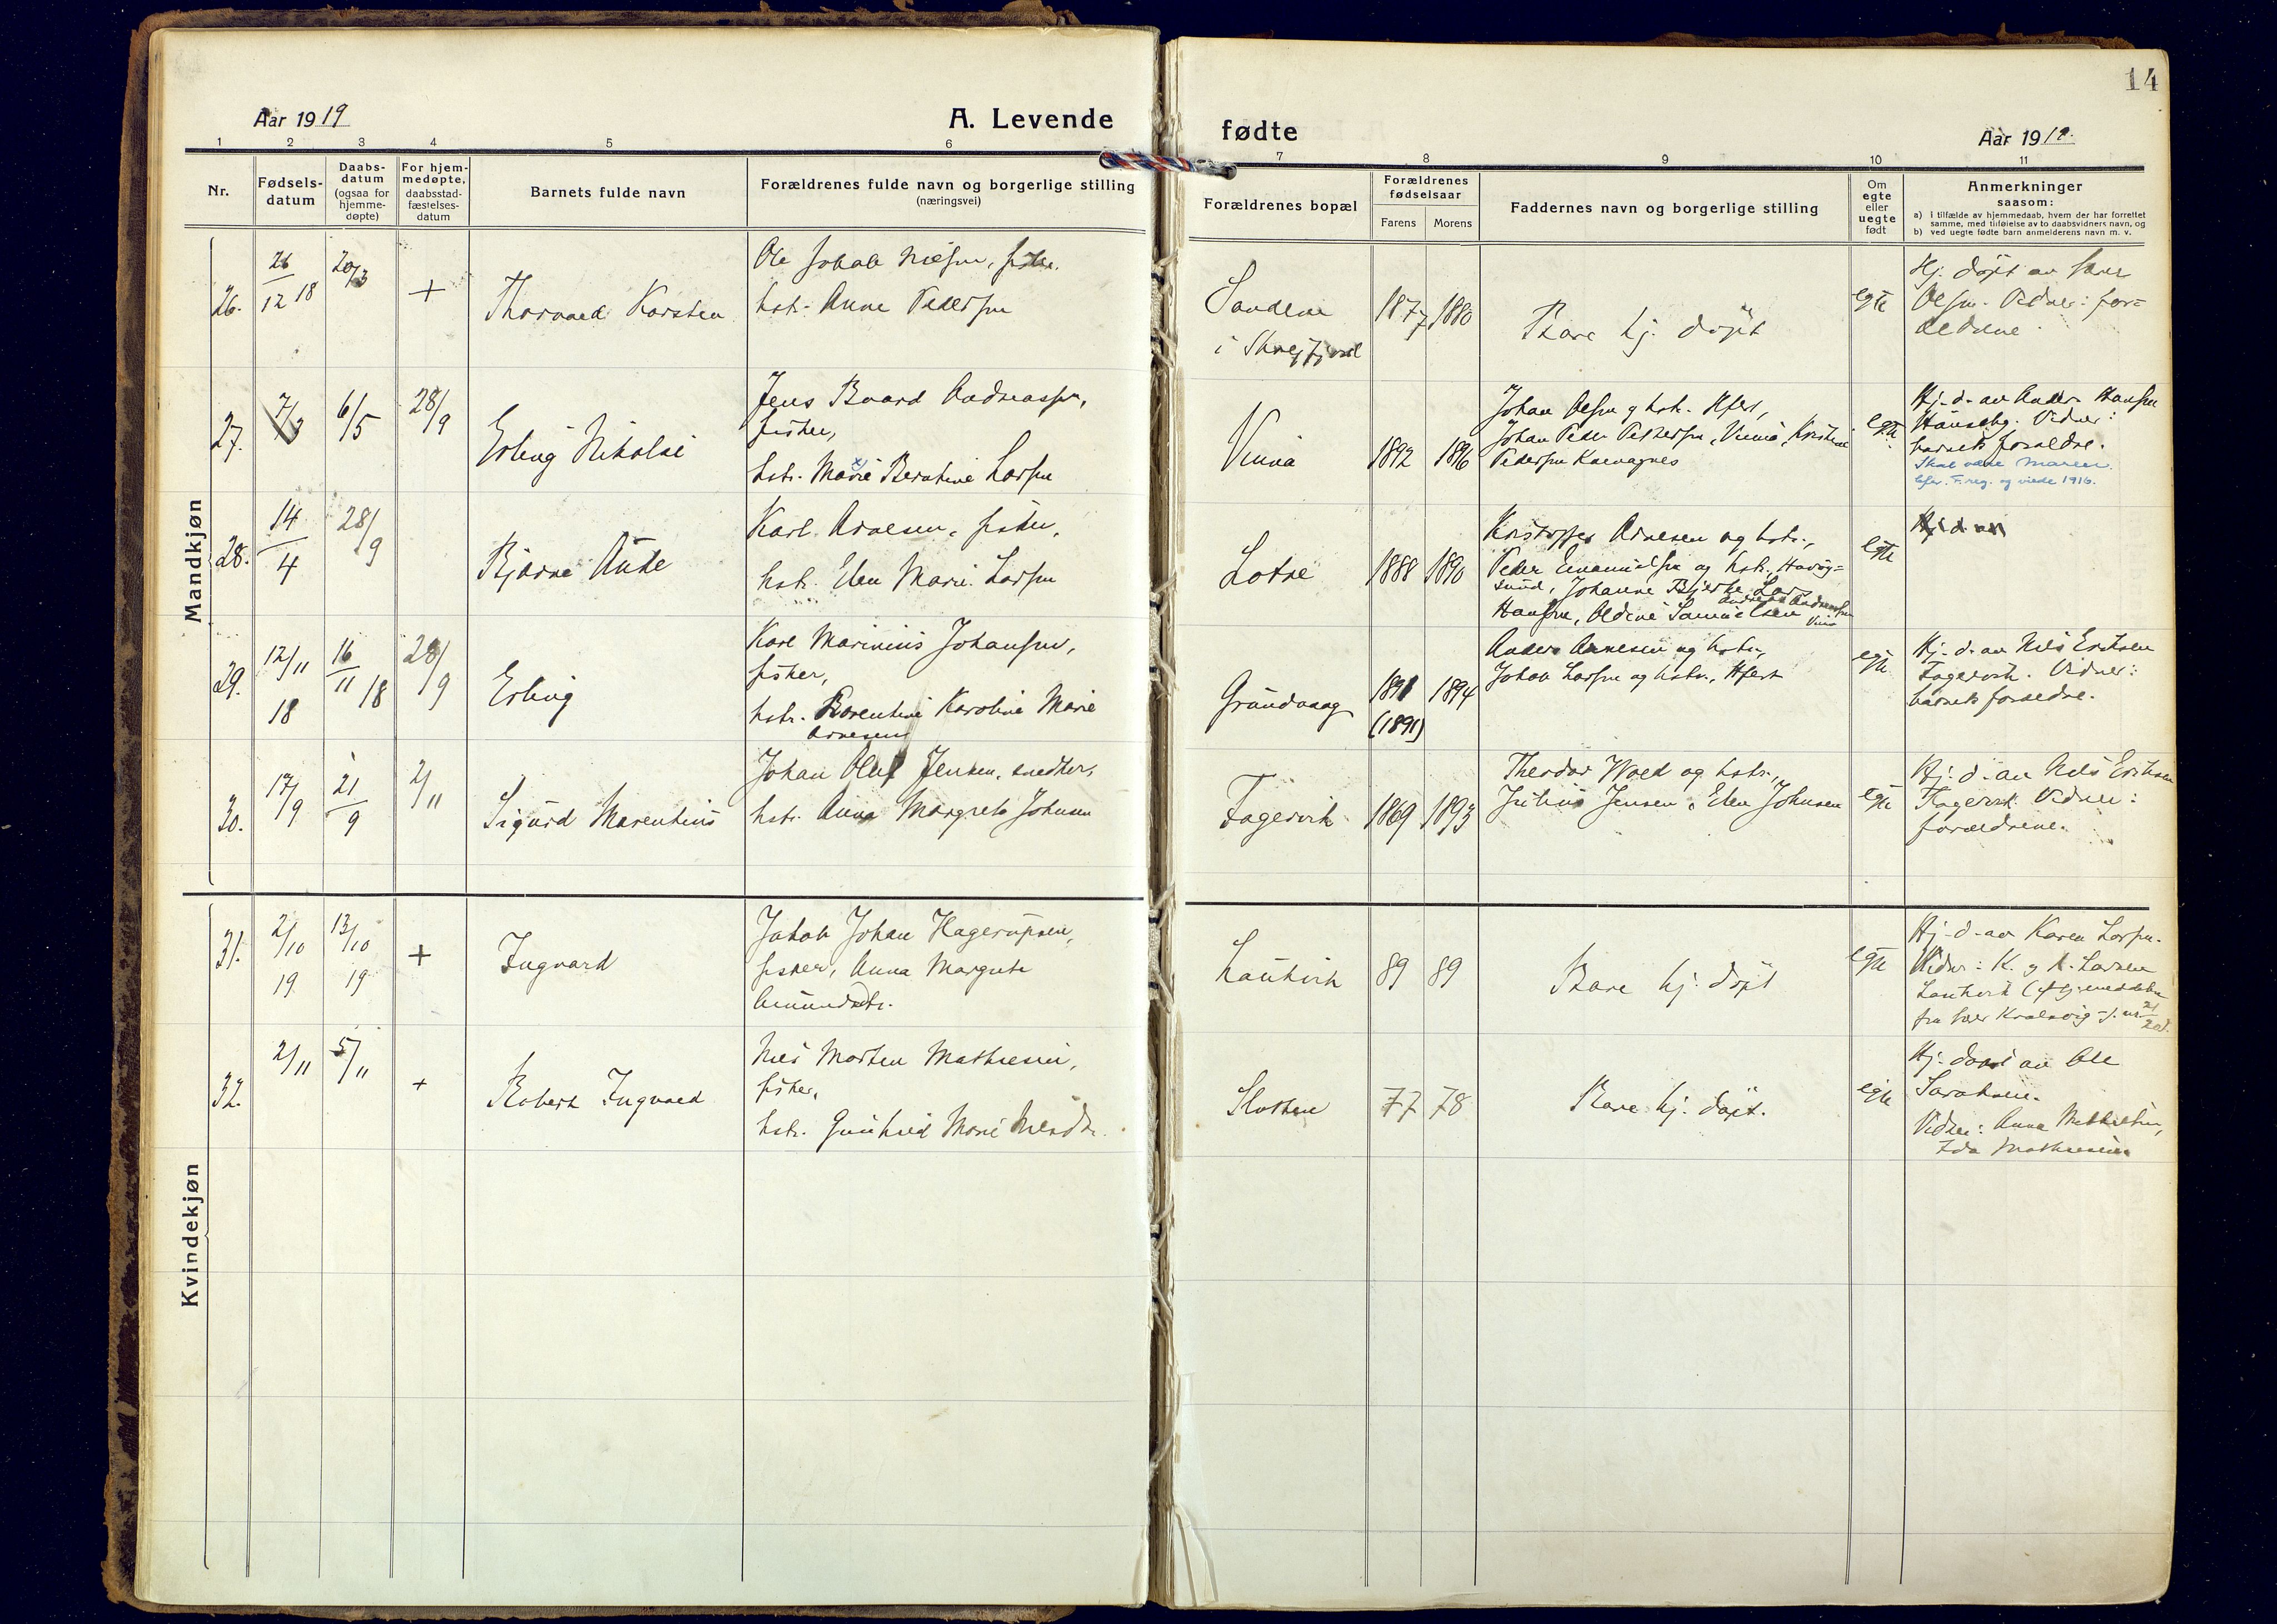 14
Aar 1919
A. Levende
fødte
Aar 1919.
1 2 3 4 5 6 7 8 9 10 11
Nr.
Fødsels-
datum
Daabs-
datum
(ogsaa for
hjemme-
døpte)
For hjem-
medøpte,
daabsstad-
fæstelses-
datum
Barnets fulde navn
Forældrenes fulde navn og borgerlige stilling
(næringsvei)
Forældrenes bopæl
Forældrenes
fødselsaar
Farens Morens
Faddernes navn og borgerlige stilling
Om
egte
eller
uegte
født
Anmerkninger
saasom:
a) i tilfælde av hjemmedaab, hvem der har forrettet
samme, med tilføielse av to daabsvidners navn, og
b) ved uegte fødte barn anmelderens navn m. v.
Mandkjøn
26.
26/12 18
20/3
+
Thorvald Karsten
Ole Johan Nilsen, fisker.
hstr. Anne Pedersen
1877 1880
Bare hj. døpt
egte
Hj. døpt av
Olsen. Vidner: for-
ældrene
27.
7/3
6/5
28/9
Erling Nikolai
Jens Baard Andreassen,
fisker,
hstr. Marie x) Berntine Larsen
Vinna
1892 1896
Johan Olsen og hstr. Hfest,
Johan Peder Pedersen, Vinna, Kristine
Pedersen
egte
Hj. d. av Anders Hansen
Vidner:
barnets forældre.
Skal være Maren
efter F.reg. og viede 1916.
28.
14/4
28/9
Bjarne Aute
Karl Arnesen, fisker,
hstr. Elen Marie Larsen
Lotre
1888 1890
Kristoffer Arnesen og hstr.,
Peder Emanuelsen og hstr., Havøy-
sund, Johanne Bjerke, Lars
Andreas Andreassen
Hansen, Oldine Samuelsen
egte
Hj. d. av
29.
12/11 18
16/11 18
28/9
Erling
Karl Marinius Johansen,
fisker,
hstr. Berentine Karoline Marie
Arnesen
Grundvaag
1891 1894
(1891)
Anders Arnesen og hstr.,
Johan Larsen og hstr., Hfest
egte
Hj. d. av Nils Eriksen
Fagervik. Vidner:
barnets forældre.
30.
17/9
21/9
2/11
Sigurd Marentius
Johan Oluf Jensen, snedker,
hstr. Anna Margrete Johnsen
Fagervik
1869 1893
Theodor Wold og hstr.,
Julius Jensen, Elen Johnsen
egte
Hj. d. av Nils Eriksen
Fagervik. Vidner:
forældrene.
Kvindekjøn
31.
2/10 19
13/10 19
+
Ingvard
Jakob Johan Hagerupsen,
fisker, Anna Margrete
Amundsdtr.
Lautvik
89 89
Bare hj. døpt
egte
Hj. d. av Karen Larsen.
Vidner: K. og A. Larsen
Lautvik
32.
2/11
5/11
+
Robert Ingvald
Nils Morten Mathisen,
fisker,
hstr. Gunhild Marie Nilsdtr.
Slotten
77 78
Bare hj. døpt.
egte
Hj. døpt av Ole
Vidner: Anna Mathisen,
Ida Mathisen